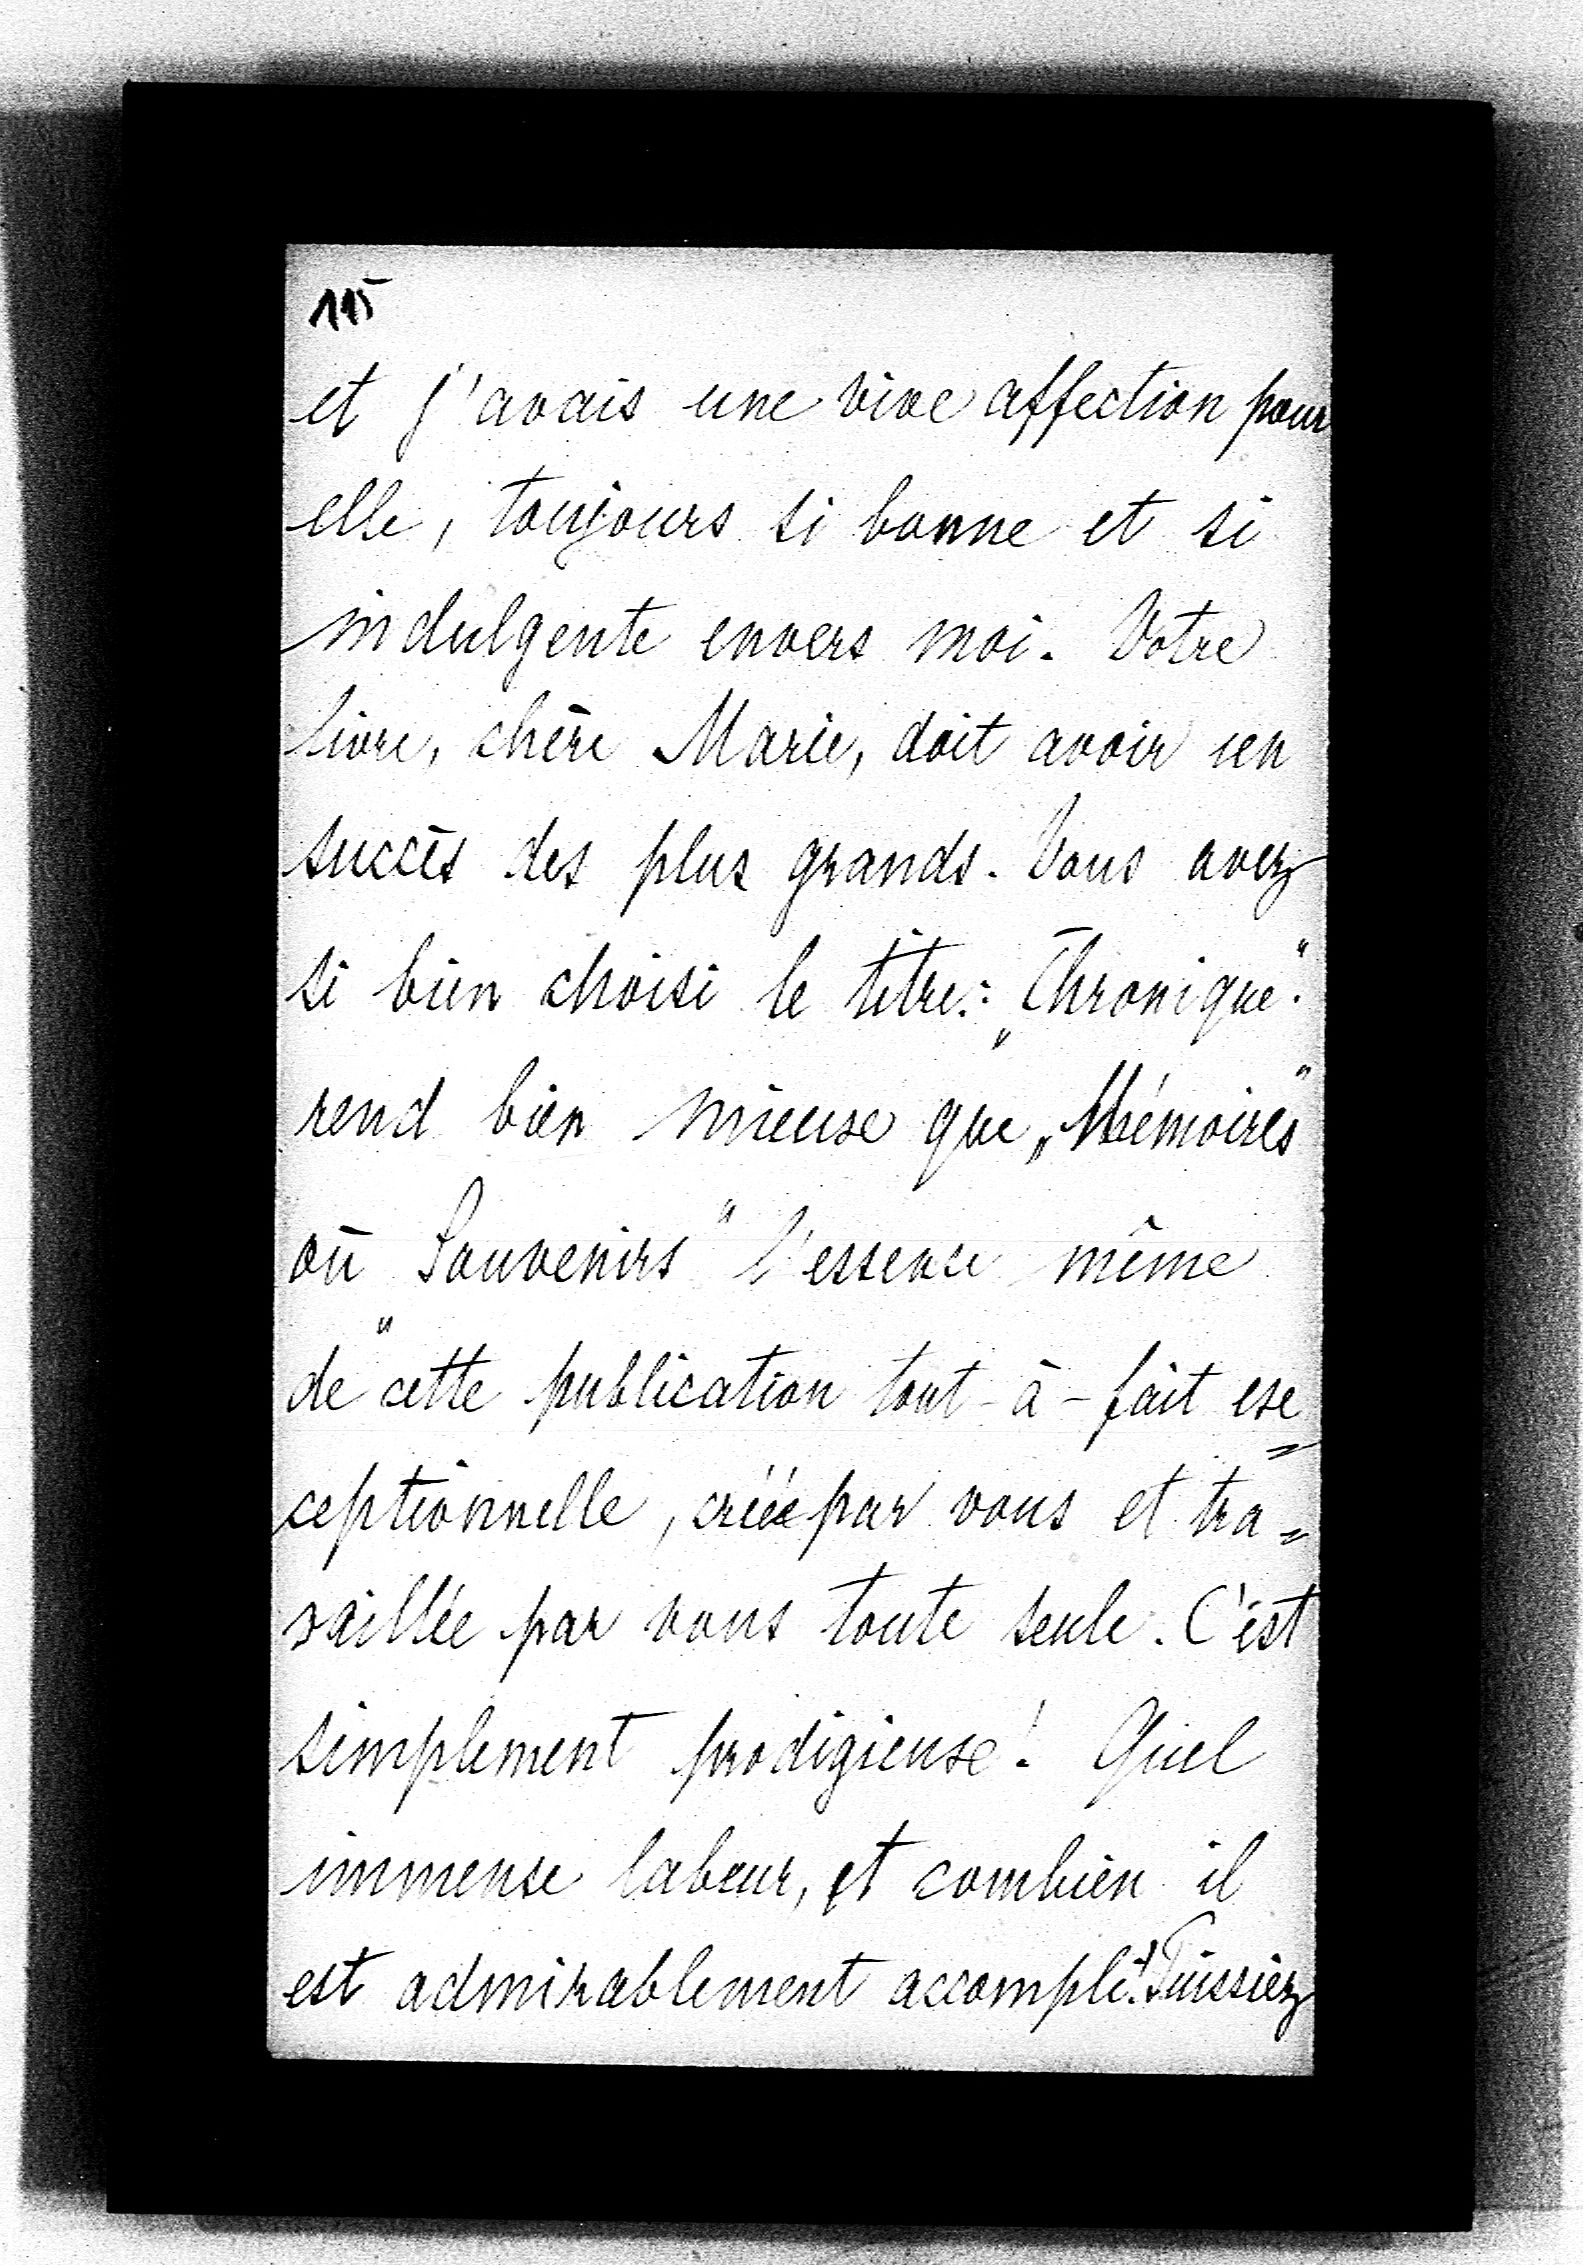 115
et j'avais une vive affection pour
elle, toujours si bonne et si
indulgente envers moi. Votre
livre, chère Marie, doit avoir un
succès des plus grands. Vous avez
si bien choisi le titre: „Chronique“.
rend bien mieux que „Mémoires“
où „Souvenirs“ l'essence même
de cette publication tout-à-fait ex=
ceptionnelle, créée par vous et tra=
vaillée par vous toute seule. C'est
simplement prodigieux! Quel
immense labeur, et combien il
est admirablement accompli! Puissiez